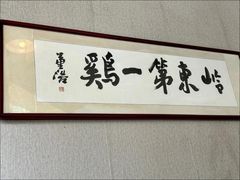 岭東第一鷄